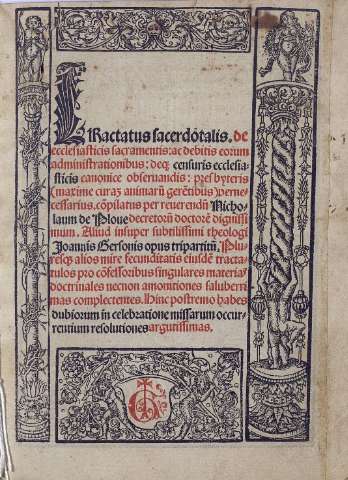 Tractatus sacerdōtalis. de
ecclesiasticis sacramentis: ac debitis eorum
administrationibus: deq; censuris ecclesia-
sticis canonice obseruandis: presbyteris
(maxime curā animarū gerētibus) perne-
cessarius. cōpilatus per reuerendū Nicho-
laum de Ploue decretorū doctorē dignissi
mum. Aliud insuper subtilissimi theologi
Joannis Gersonis opus tripartitū. Plu-
resq; alios mire fecunditatis eiusdē tracta
tulos pro cōfessoribus singulares materias
doctrinales necnon amonitiones saluberri
mas complectentes. Hinc postremo habes
dubiorum in celebratione missarum occur-
rentium resolutiones argutissimas.